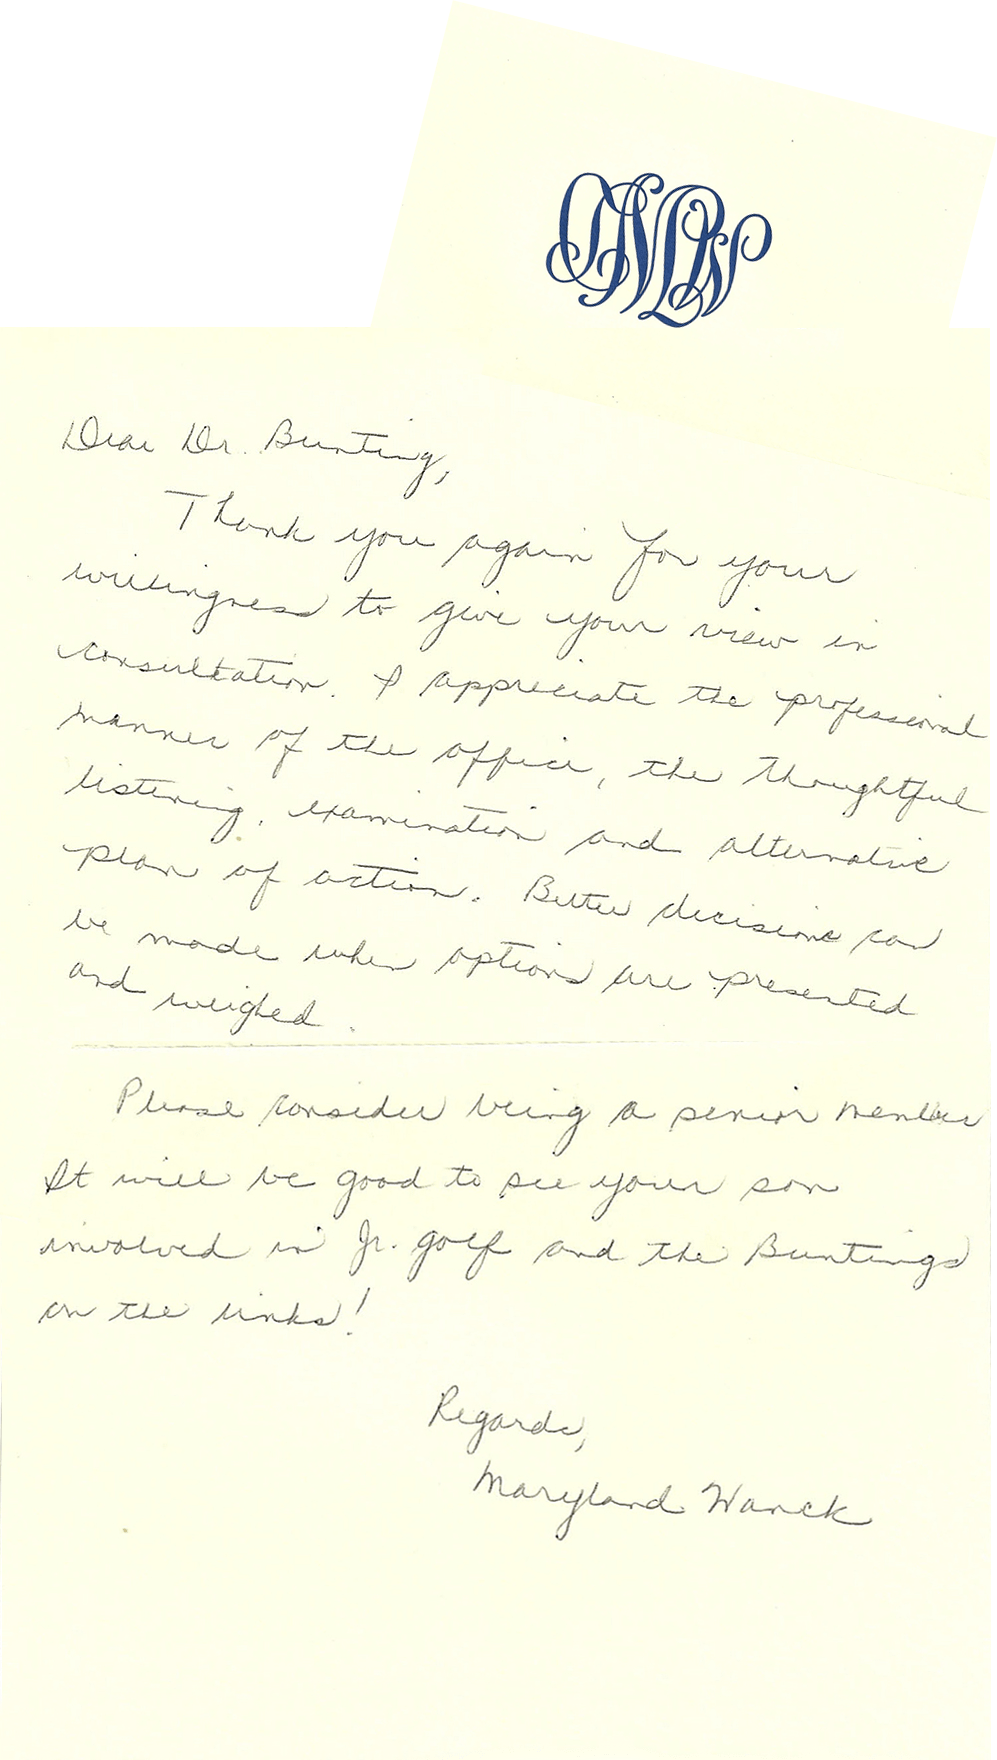 MLW
Dear Dr. Bunting,
Thank you again for your
willingness to give your view in
consultation. I appreciate the professional
manner of the office, the thoughtful
listening, examination and alternative
plan of action. Better decisions can
be made when options are presented
and weighed.
Please consider being a senior member
It will be good to see your son
involved in Jr. golf and the Buntings
on the links!
Regards,
Maryland Wanck